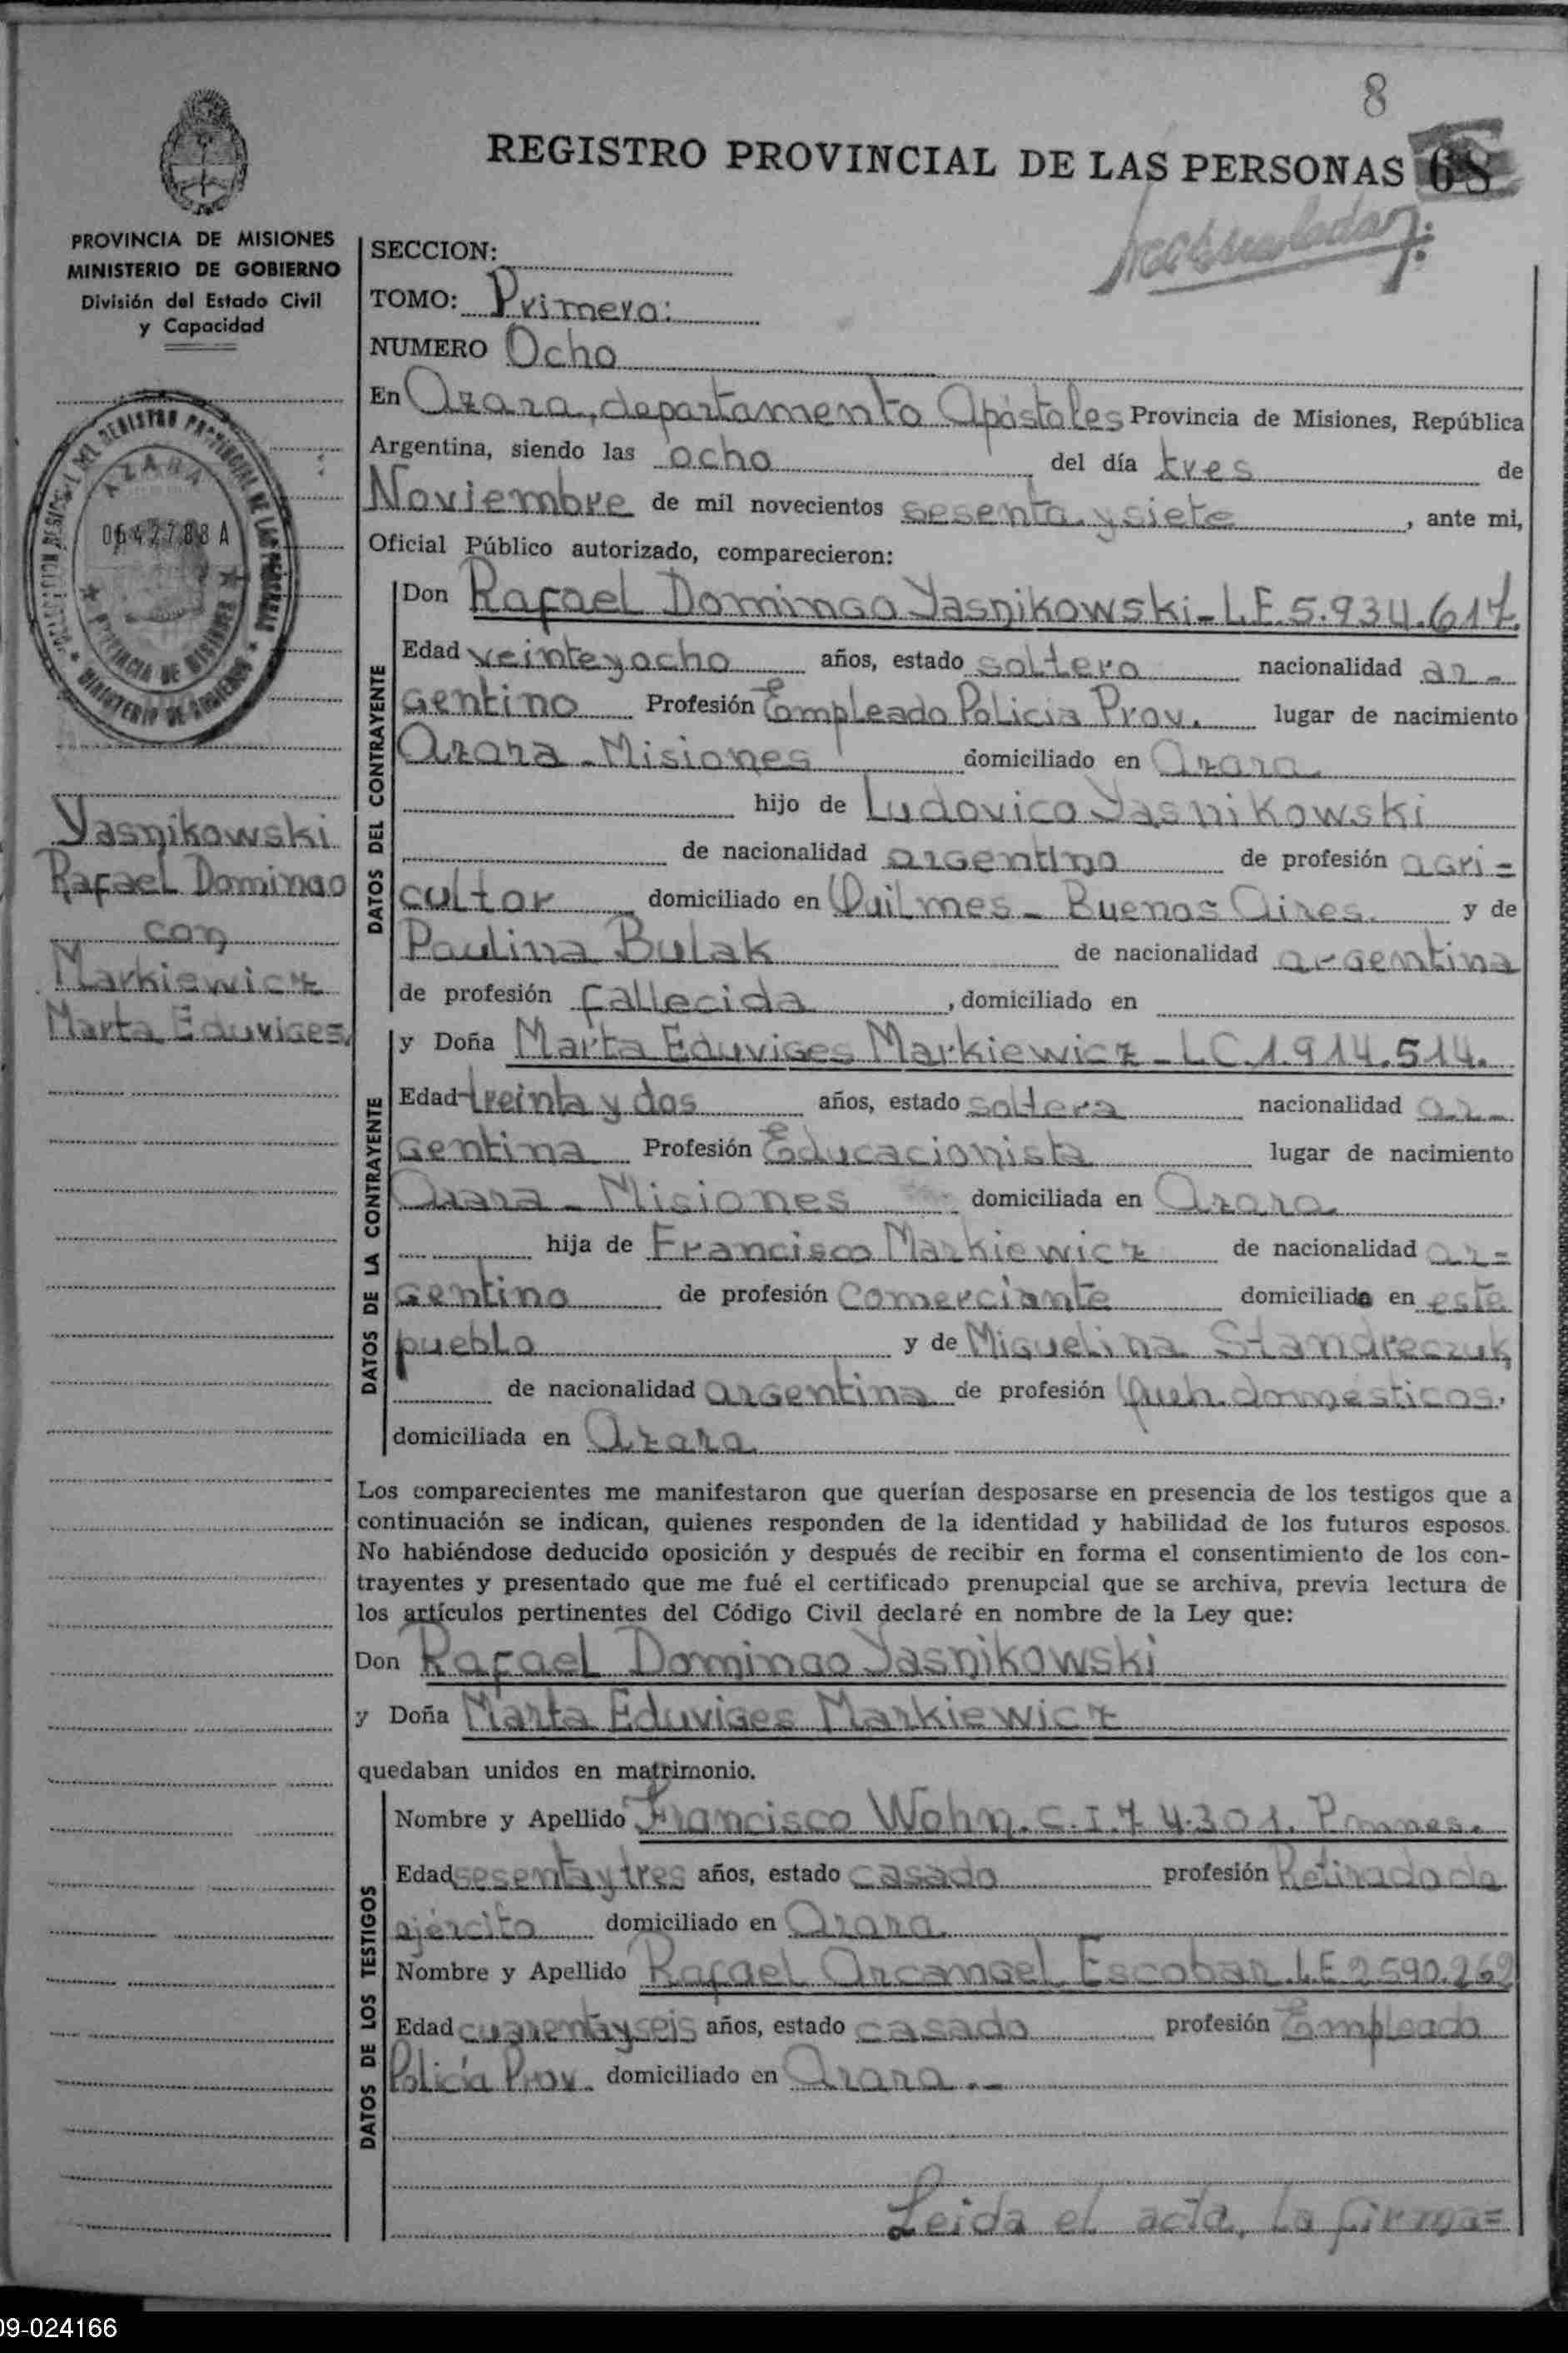 8
REGISTRO PROVINCIAL DE LAS PERSONAS 68
PROVINCIA DE MISIONES
MINISTERIO DE GOBIERNO
División del Estado Civil
y Capacidad
SECCION:
TOMO: Primera:
NUMERO Ocho
En Azara, departamento Apóstoles Provincia de Misiones, República
Argentina, siendo las ocho del día tres de
Noviembre de mil novecientos sesenta y siete, ante mi,
Oficial Público autorizado, comparecieron:
AZARA
0642788 A
PROVINCIA DE MISIONES
MINISTERIO DE GOBIERNO
Yasnikowski
Rafael Domingo
con
Markiewicz
Marta Eduviges
DATOS DEL CONTRAYENTE
Don Rafael Domingo Yasnikowski - L.E. 5.934.617.
Edad veinte y ocho años, estado soltero nacionalidad ar-
gentino Profesión Empleado Policia Prov. lugar de nacimiento
Azara - Misiones domiciliado en Azara
hijo de Ludovico Yasnikowski
de nacionalidad argentino de profesión agri=
cultor domiciliado en Quilmes - Buenos Aires. y de
Paulina Bulak de nacionalidad argentina
de profesión fallecida, domiciliado en
DATOS DE LA CONTRAYENTE
y Doña Marta Eduviges Markiewicz - L.C. 1.914.514.
Edad treinta y dos años, estado soltera nacionalidad ar-
gentina Profesión Educacionista lugar de nacimiento
Azara - Misiones domiciliada en Azara
hija de Francisco Markiewicz de nacionalidad ar=
gentino de profesión Comerciante domiciliado en este
pueblo y de Miguelina Standreczuk
de nacionalidad argentina de profesión Queh. domésticos.
domiciliada en Azara
Los comparecientes me manifestaron que querían desposarse en presencia de los testigos que a
continuación se indican, quienes responden de la identidad y habilidad de los futuros esposos.
No habiéndose deducido oposición y después de recibir en forma el consentimiento de los con-
trayentes y presentado que me fué el certificado prenupcial que se archiva, previa lectura de
los artículos pertinentes del Código Civil declaré en nombre de la Ley que:
Don Rafael Domingo Yasnikowski
y Doña Marta Eduviges Markiewicz
quedaban unidos en matrimonio.
DATOS DE LOS TESTIGOS
Nombre y Apellido Francisco Wohn. C.I. 74.301.
Edad sesenta y tres años, estado casado profesión Retirado de
ejército domiciliado en Azara
Nombre y Apellido Rafael Arcangel Escobar L.E 2590.262
Edad cuarenta y seis años, estado casado profesión Empleado
Policía Prov. domiciliado en Azara.-
Leida el acta, la firma=
09-024166